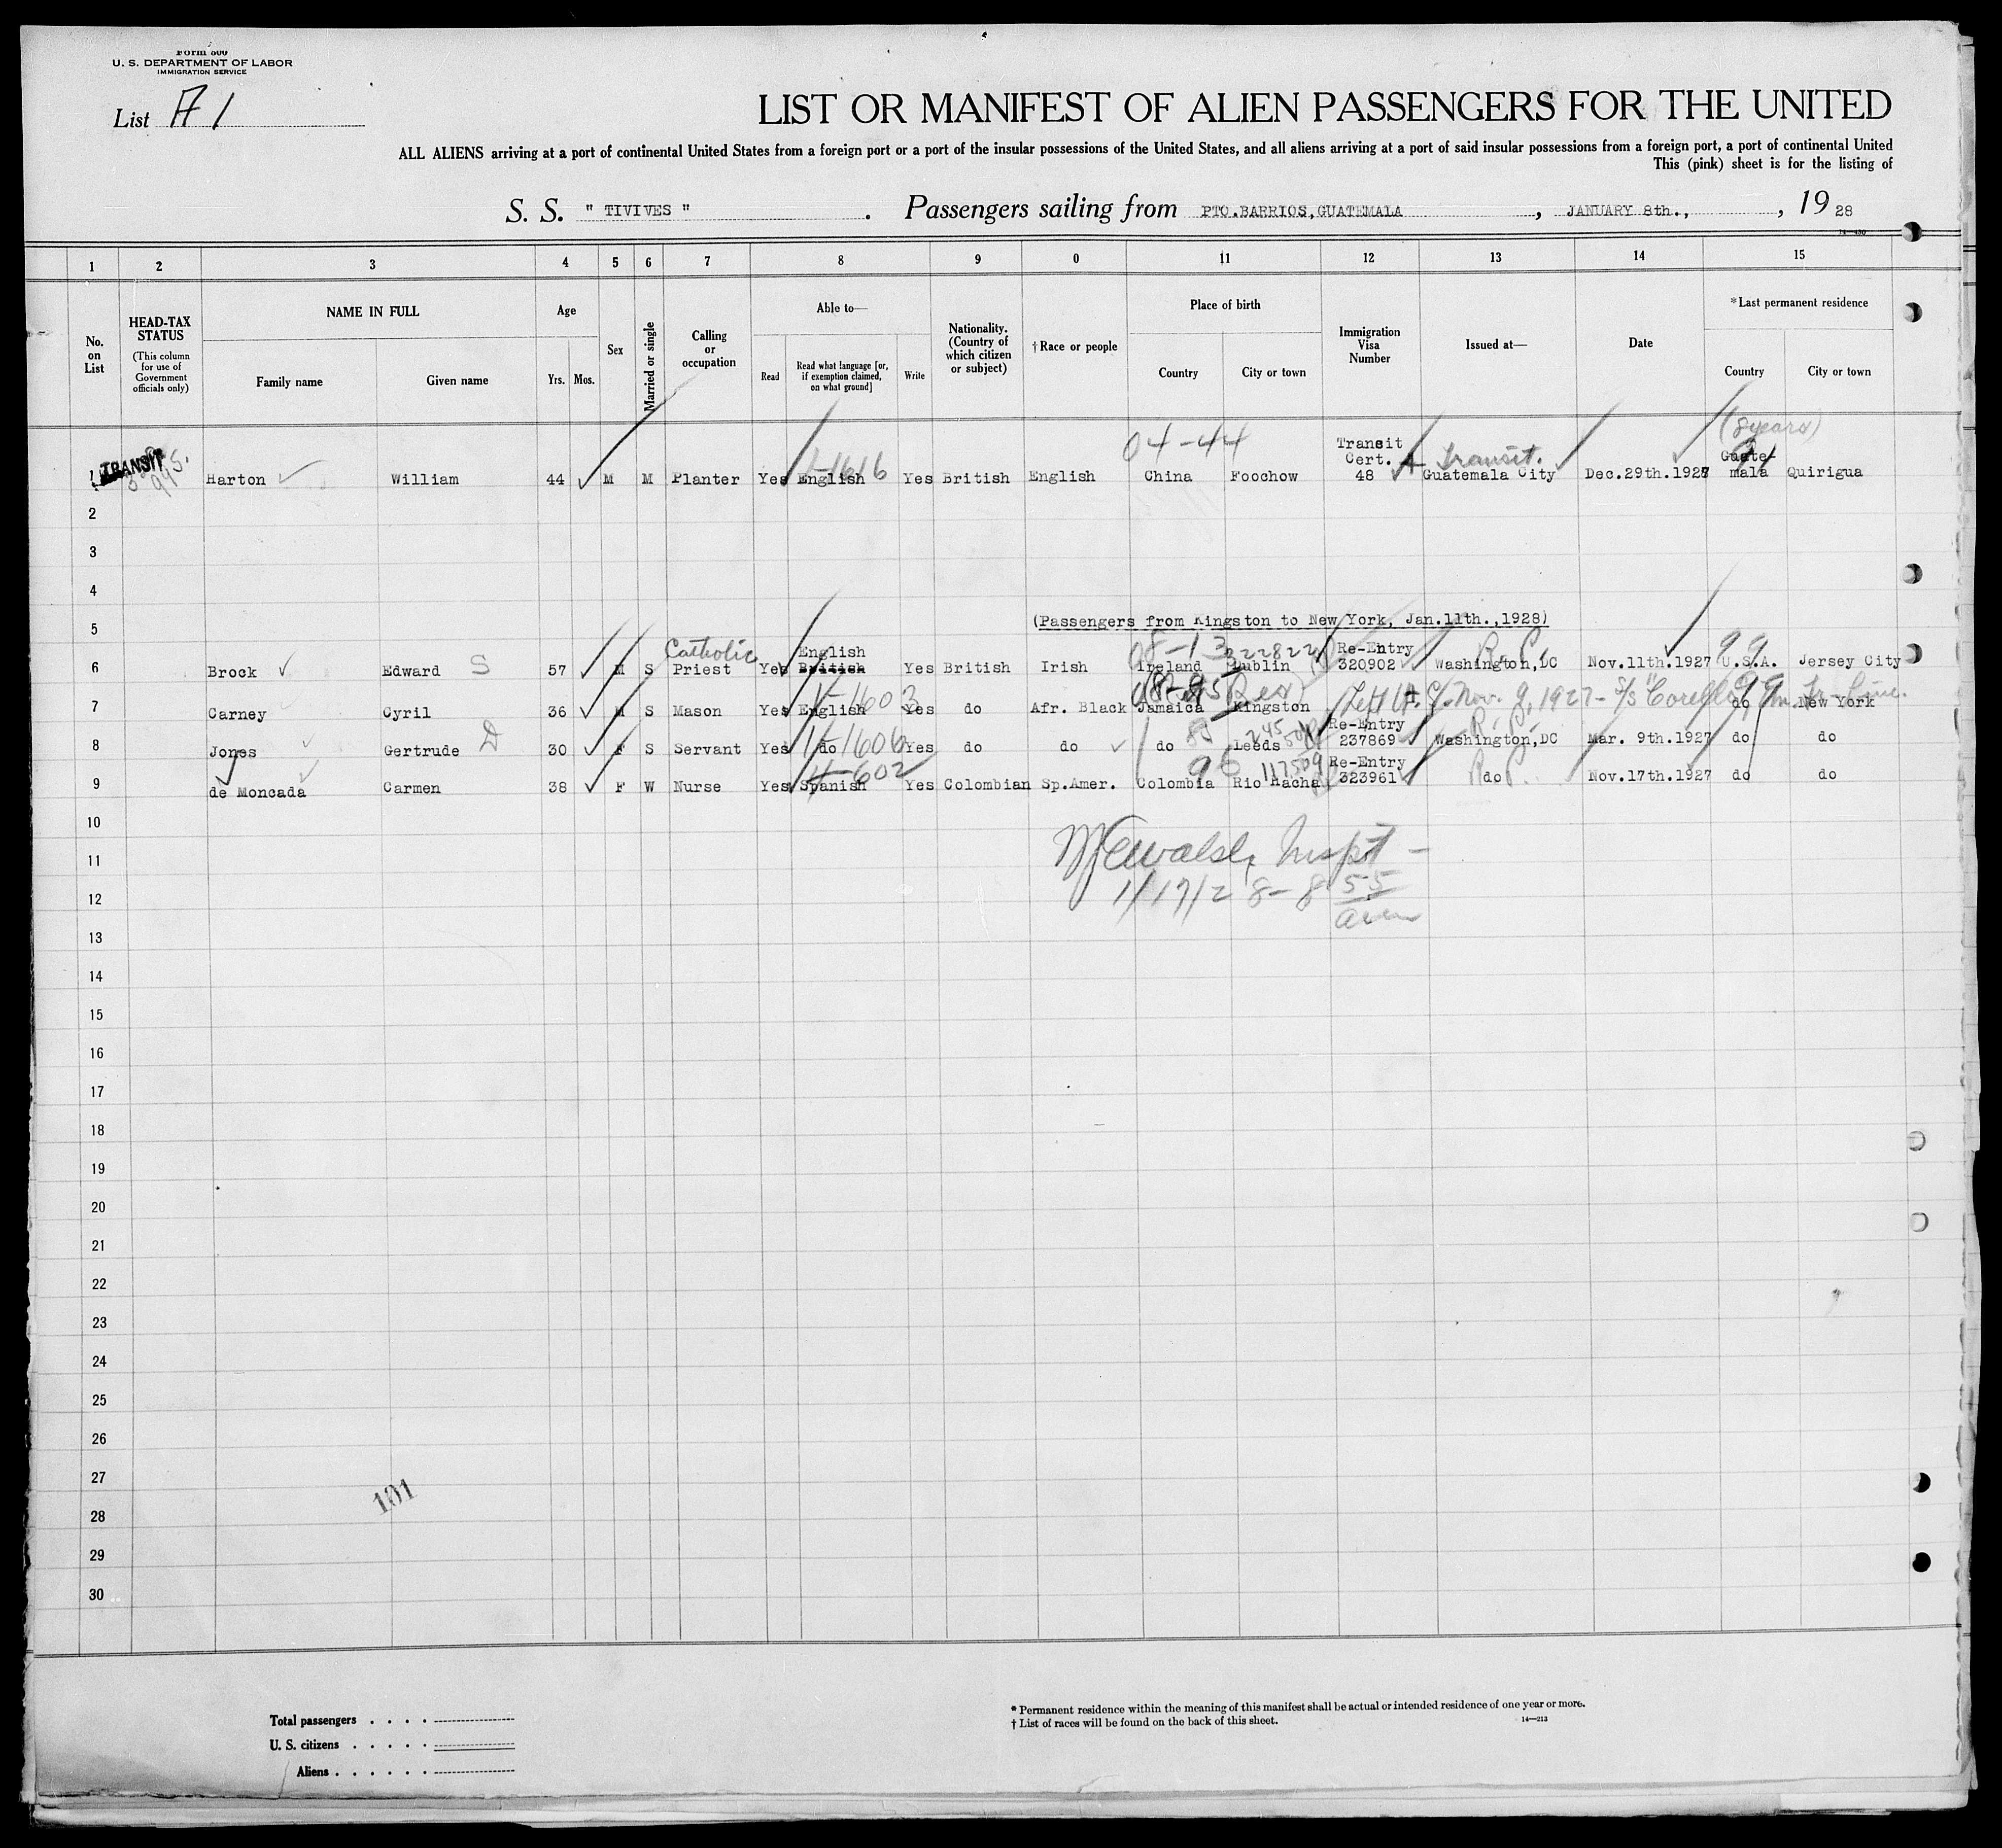 Form 500
U. S. DEPARTMENT OF LABOR
IMMIGRATION SERVICE
List A 1
LIST OR MANIFEST OF ALIEN PASSENGERS FOR THE UNITED
ALL ALIENS arriving at a port of continental United States from a foreign port or a port of the insular possessions of the United States, and all aliens arriving at a port of said insular possessions from a foreign port, a port of continental United
This (pink) sheet is for the listing of
S. S. " TIVIVES " . Passengers sailing from PTO.BARRIOS,GUATEMALA , JANUARY 8th., , 19 28
1 2 3 4 5 6 7 8 9 0 11 12 13 14 15
No. on List
HEAD-TAX STATUS (This column for use of Government officials only)
NAME IN FULL Family name Given name
Age Yrs. Mos.
Sex
Married or single
Calling or occupation
Able to— Read Read what language [or, if exemption claimed, on what ground] Write
Nationality. (Country of which citizen or subject)
†Race or people
Place of birth Country City or town
Immigration Visa Number
Issued at—
Date
*Last permanent residence Country City or town
04-44 (8 years)
1 TRANSIT Harton William 44 M M Planter Yes English 1-1616 Yes British English China Foochow Transit Cert. 48 Transit. Guatemala City Dec.29th.1927 Guate-mala Quirigua
2
3
4
5 (Passengers from Kingston to New York, Jan.11th.,1928)
6 Brock Edward S 57 M S Catholic Priest Yes English British Yes British Irish 08-13 Ireland Dublin Re-Entry 320902 R.P. Washington,DC Nov.11th.1927 99 U.S.A. Jersey City
7 Carney Cyril 36 M S Mason Yes English 1-1603 Yes do Afr. Black Jamaica Kingston Left U.S. Nov. 9, 1927- S/S Corella 99 do New York
8 Jones Gertrude D 30 F S Servant Yes do 1-1606 Yes do do do Leeds Re-Entry 237869 R.P. Washington,DC Mar. 9th.1927 do do
9 de Moncada Carmen 38 F W Nurse Yes Spanish 602 Yes Colombian Sp.Amer. Colombia 96 Rio Hacha 117509 Re-Entry 323961 do R.P. Nov.17th.1927 do do
10
11 Walsh, Inspt -
12 1/17/28- 8 55
13
14
15
16
17
18
19
20
21
22
23
24
25
26
27
101
28
29
30
Total passengers . . . .
U. S. citizens . . . . .
Aliens . . . . . .
* Permanent residence within the meaning of this manifest shall be actual or intended residence of one year or more.
† List of races will be found on the back of this sheet. 14—213